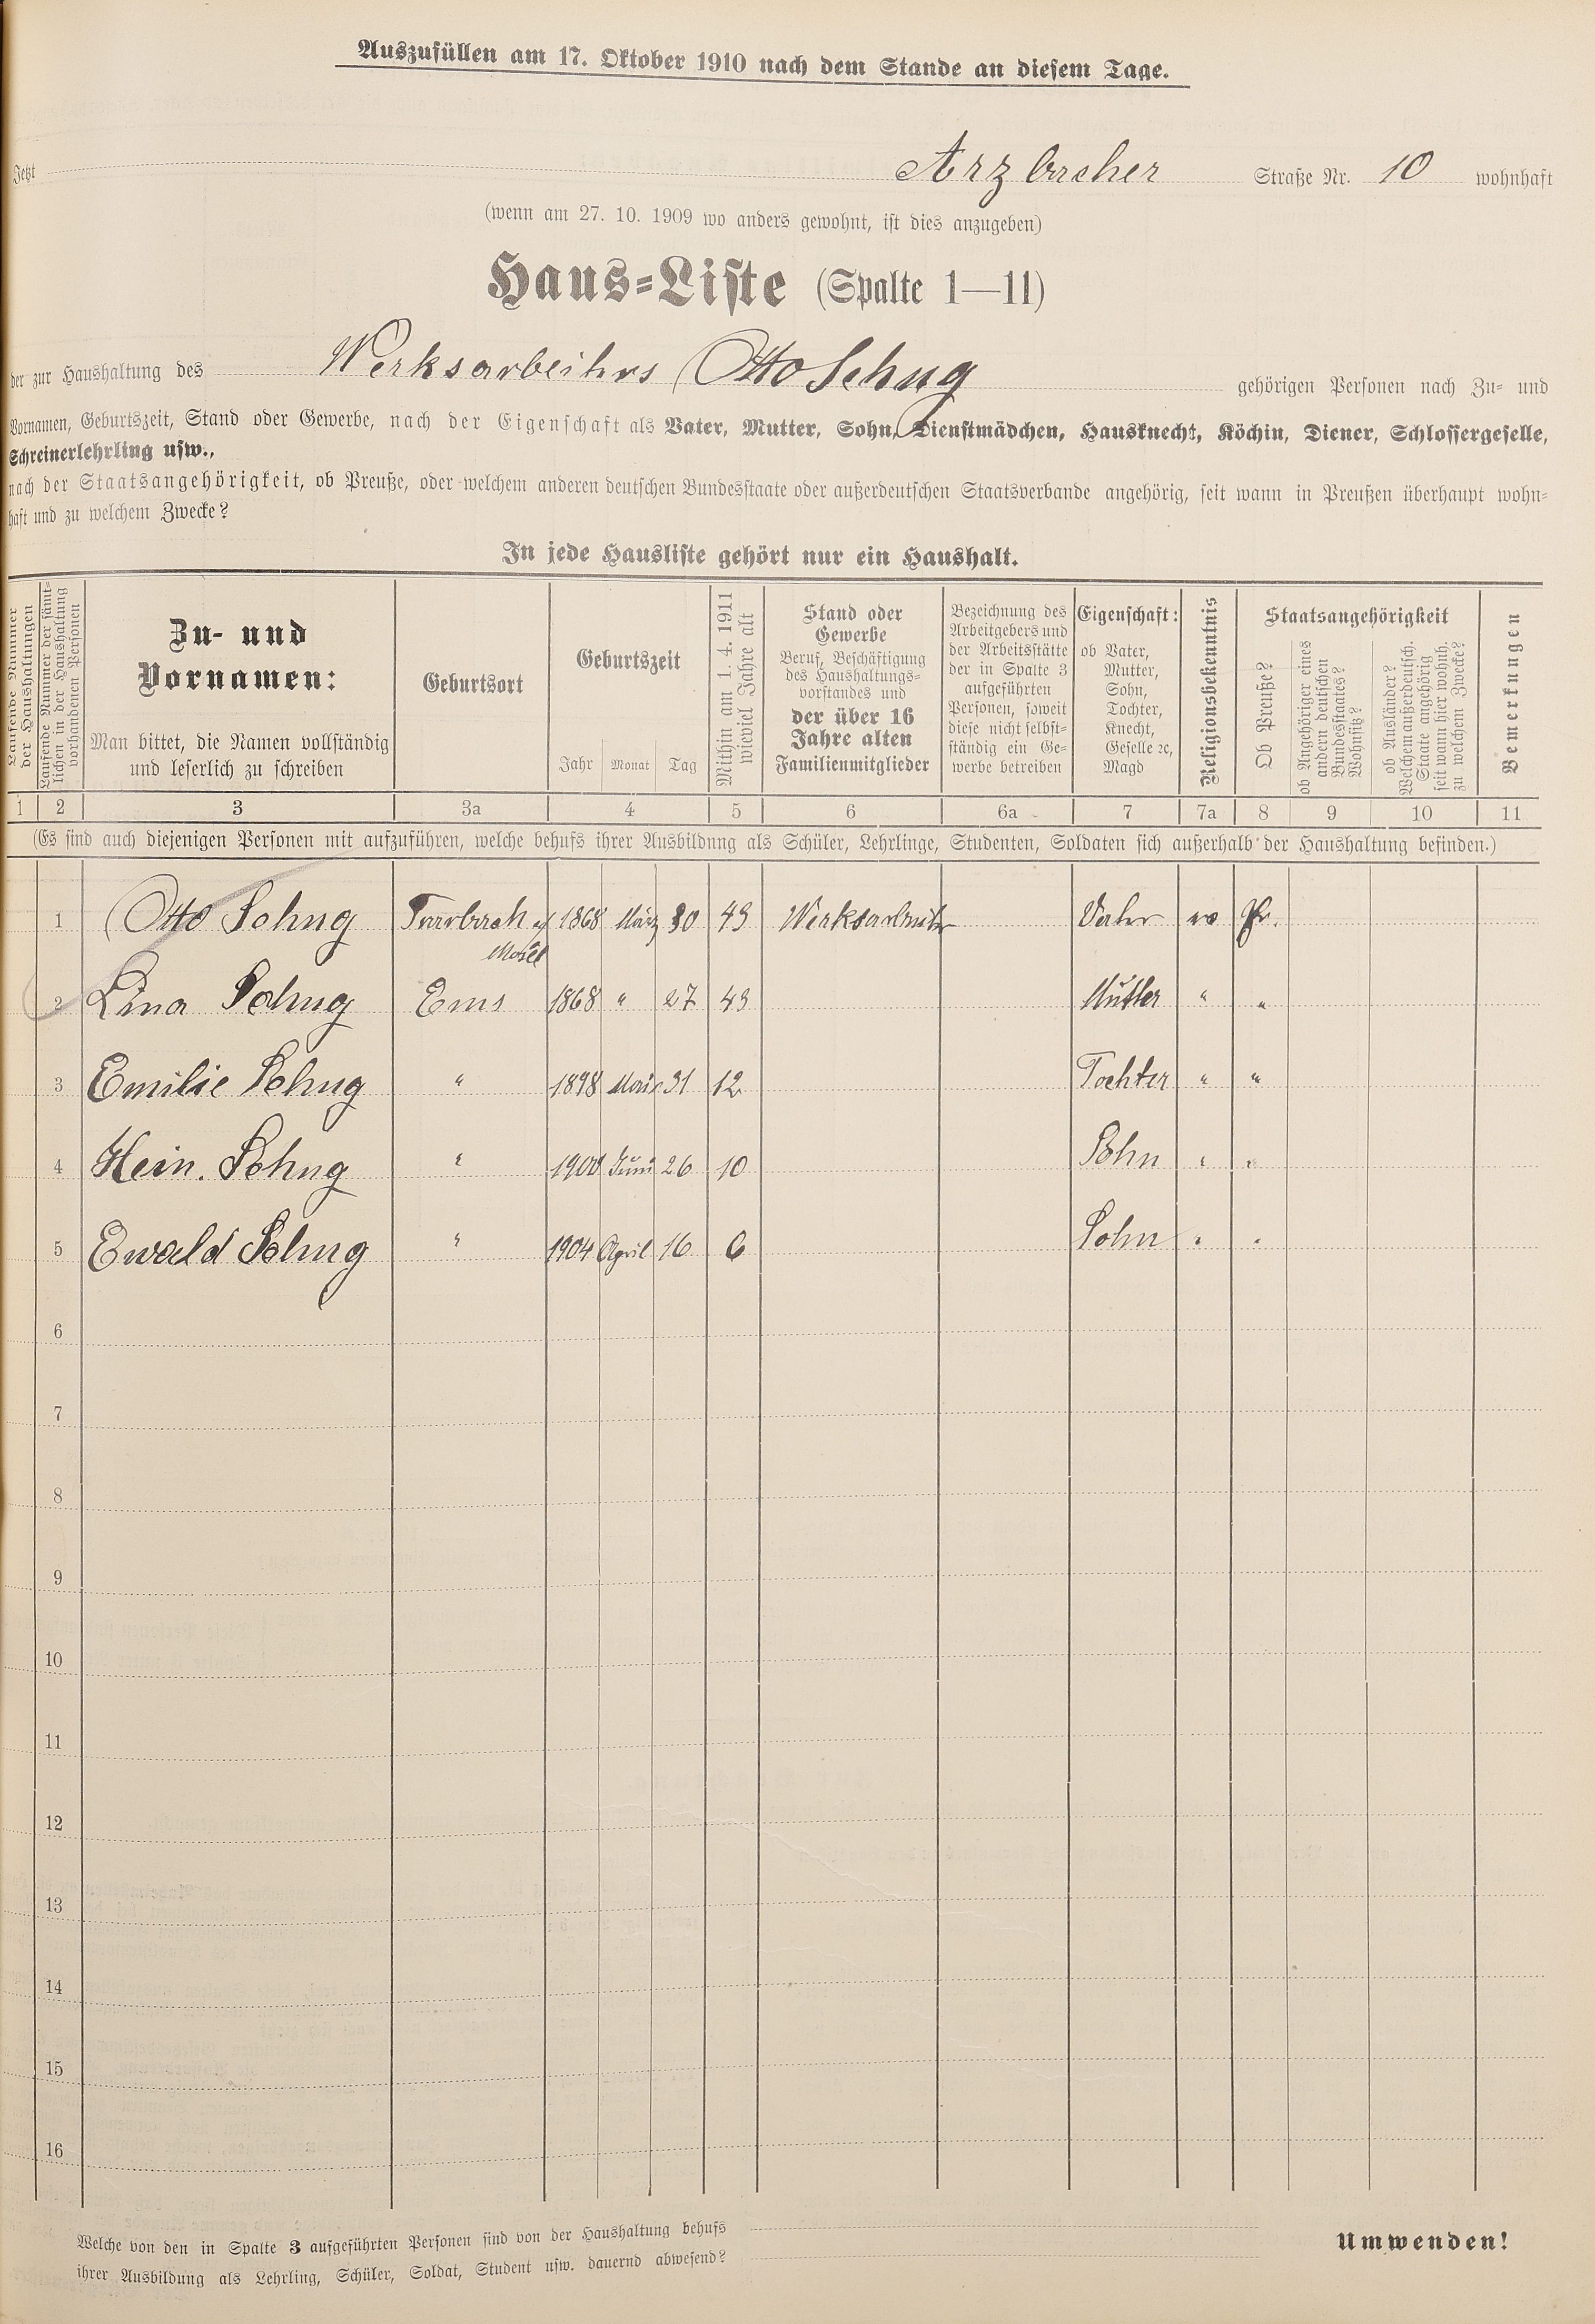 Auszufüllen am 17. Oktober 1910 nach dem Stande an diesem Tage.
Jetzt Arzbacher Straße Nr. 10 wohnhaft
(wenn am 27. 10. 1909 wo anders gewohnt, ist dies anzugeben)
Haus-Liste (Spalte 1—11)
der zur Haushaltung des Werksarbeiters Otto Schug gehörigen Personen nach Zu- und
Vornamen, Geburtszeit, Stand oder Gewerbe, nach der Eigenschaft als Vater, Mutter, Sohn, Dienstmädchen, Hausknecht, Köchin, Diener, Schlossergeselle,
Schreinerlehrling usw.,
nach der Staatsangehörigkeit, ob Preuße, oder welchem anderen deutschen Bundesstaate oder außerdeutschen Staatsverbande angehörig, seit wann in Preußen überhaupt wohn-
haft und zu welchem Zwecke?
In jede Hausliste gehört nur ein Haushalt.
Laufende Nummer
der Haushaltungen
Laufende Nummer der sämt-
lichen in der Haushaltung
vorhandenen Personen
Zu- und
Vornamen:
Man bittet, die Namen vollständig
und leserlich zu schreiben
Geburtsort
Geburtszeit
Jahr Monat Tag
Mithin am 1. 4. 1911
wieviel Jahre alt
Stand oder
Gewerbe
Beruf, Beschäftigung
des Haushaltungs-
vorstandes und
der über 16
Jahre alten
Familienmitglieder
Bezeichnung des
Arbeitgebers und
der Arbeitsstätte
der in Spalte 3
aufgeführten
Personen, soweit
diese nicht selbst-
ständig ein Ge-
werbe betreiben
Eigenschaft:
ob Vater,
Mutter,
Sohn,
Tochter,
Knecht,
Geselle ꝛc,
Magd
Religionsbekenntnis
Staatsangehörigkeit
Ob Preuße?
ob Angehöriger eines
andern deutschen
Bundesstaates?
Wohnsitz?
ob Ausländer?
Welchem außerdeutsch.
Staate angehörig
seit wann hier wohnh.
zu welchem Zwecke?
Bemerkungen
1 2 3 3a 4 5 6 6a 7 7a 8 9 10 11
(Es sind auch diejenigen Personen mit aufzuführen, welche behufs ihrer Ausbildung als Schüler, Lehrlinge, Studenten, Soldaten sich außerhalb der Haushaltung befinden.)
1 Otto Schug Trarbach a/ 1868 März 30 43 Werksarbeiter Vater Pr.
Mosel
2 Lina Schug Ems 1868 " 27 43 Mutter " "
3 Emilie Schug " 1898 Mai 31 12 Tochter " "
4 Hein. Schug " 1900 Juni 26 10 Sohn " "
5 Ewald Schug " 1904 April 16 6 Sohn " "
6
7
8
9
10
11
12
13
14
15
16
Welche von den in Spalte 3 aufgeführten Personen sind von der Haushaltung behufs
ihrer Ausbildung als Lehrling, Schüler, Soldat, Student usw. dauernd abwesend?
Umwenden!